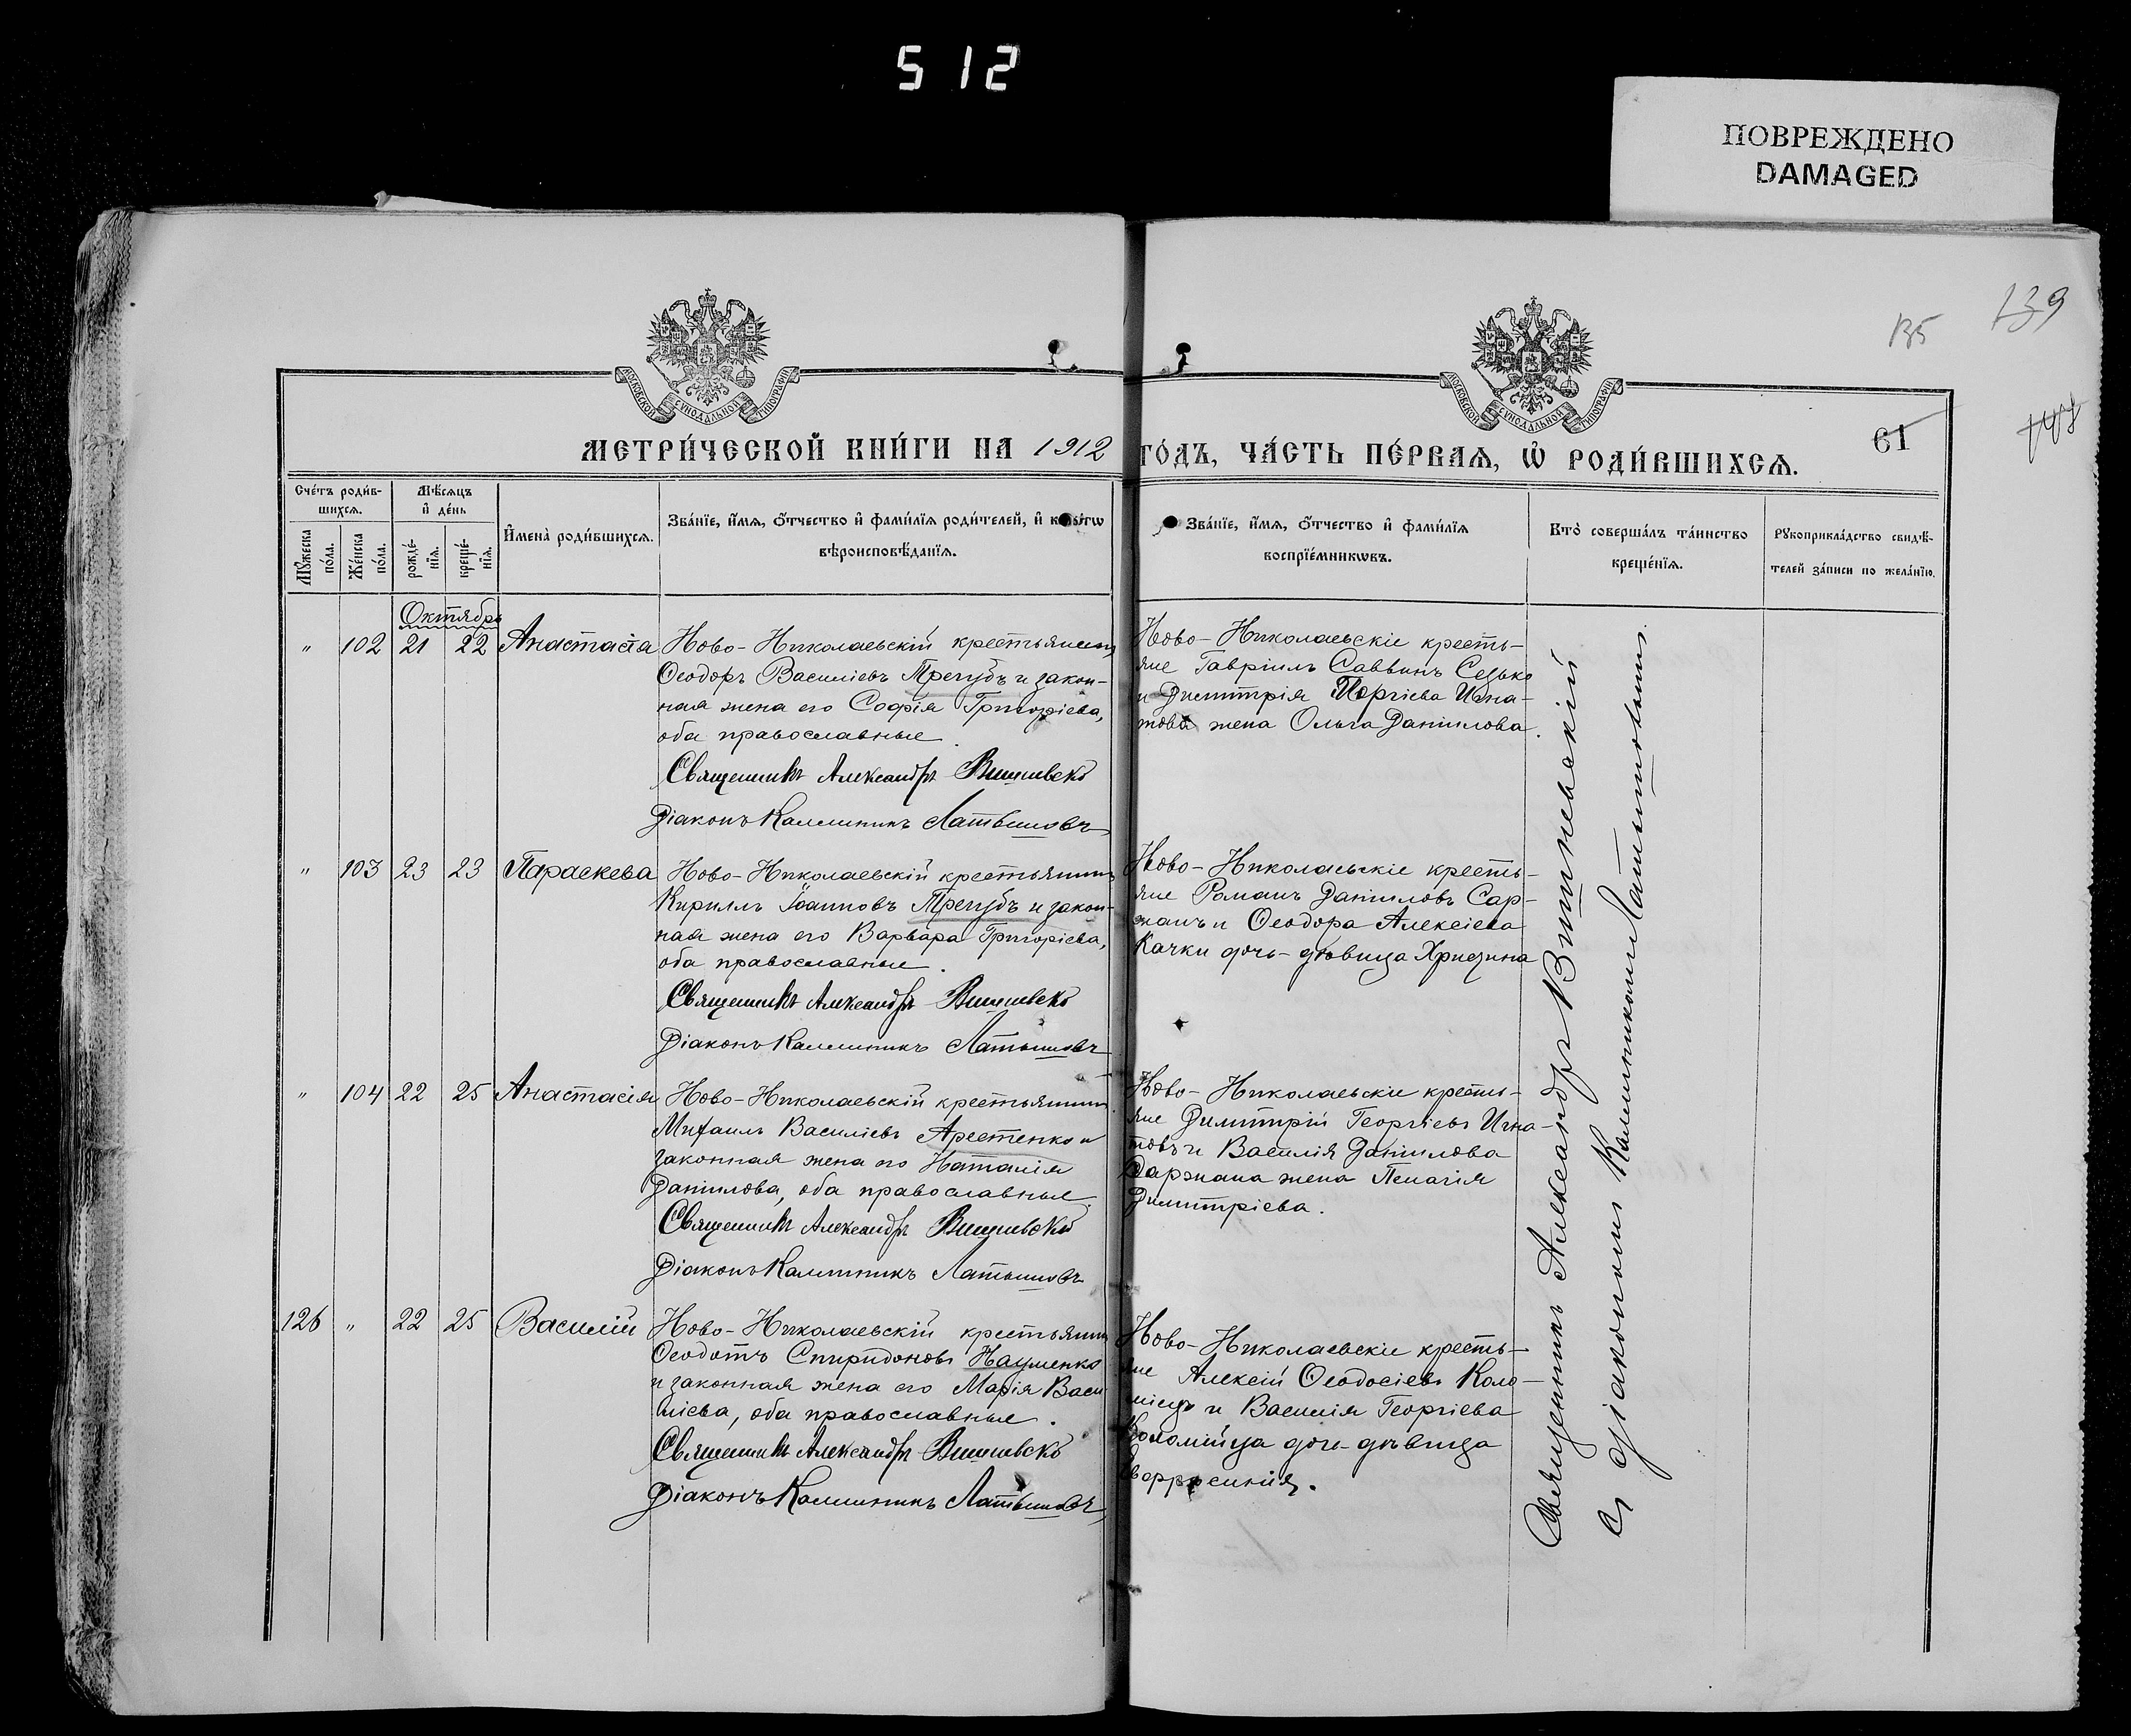 512
ПОВРЕЖДЕНО
DAMAGED
139
135
61
МОСКОВСКОЙ СѴНОДАЛЬНОЙ ТИПОГРАФІИ
МОСКОВСКОЙ СѴНОДАЛЬНОЙ ТИПОГРАФІИ
МЕТРИ́ЧЕСКОЙ КНИ́ГИ НА 1912 ГО́ДЪ, ЧА́СТЬ ПЕ́РВАѦ, Ѡ҆ РОДИ́ВШИХСѦ.
Сче́тъ роди́в-
шихсѧ.
Мꙋ́жеска по́ла.
Же́нска по́ла.
Мѣ́сѧцъ
и҆ де́нь
рожде́-
нїѧ.
креще́-
нїѧ.
И҆мена̀ роди́вшихсѧ.
Зва́нїе, и҆́мѧ, ѻ҆́тчество и҆ фами́лїѧ роди́телей, и҆
вѣроисповѣ́данїѧ.
Зва́нїе, и҆́мѧ, ѻ҆́тчество и҆ фами́лїѧ
воспрїе́мникѡвъ.
Кто̀ соверша́лъ та́инство
креще́нїѧ.
Рꙋкоприкла́дство свидѣ́-
телей за́писи по жела́нїю.
Октябрь
" 102 21 22 Анастасія
Ново-Николаевскій крестьянинъ
Ѳеодоръ Василіевъ Трегубъ и закон-
ная жена его Софія Григоріева,
оба православные.
Священникъ Александръ Вишневскій
Діаконъ Каллиникъ Латышовъ
Ново-Николаевскіе кресть-
яне Гавріилъ Саввинъ Сезько
и Димитрія Георгіева Игна-
това жена Ольга Даніилова.
" 103 23 23 Параскева
Ново-Николаевскій крестьянинъ
Кириллъ Іоанновъ Трегубъ и закон-
ная жена его Варвара Григоріева,
оба православные.
Священникъ Александръ Вишневскій
Діаконъ Каллиникъ Латышовъ
Ново-Николаевскіе кресть-
яне Романъ Даніиловъ Сар-
жанъ и Ѳеодора Алексіева
Качки дочь-дѣвица Хризина
" 104 22 25 Анастасія
Ново-Николаевскій крестьянинъ
Михаилъ Василіевъ Арестенко и
законная жена его Наталія
Даніилова, оба православные
Священникъ Александръ Вишневскій
Діаконъ Каллиникъ Латышовъ
Ново-Николаевскіе кресть-
яне Димитрій Георгіевъ Игна-
товъ и Василія Даніилова
Саржана жена Пелагія
Димитріева.
126 " 22 25 Василій
Ново-Николаевскій крестьянинъ
Ѳеодотъ Спиридоновъ Науменко
и законная жена его Марія Васи-
ліева, оба православные.
Священникъ Александръ Вишневскій
Діаконъ Каллиникъ Латышовъ
Ново-Николаевскіе кресть-
яне Алексій Ѳеодосіевъ Коло-
міецъ и Василія Георгіева
Коломійца дочь-дѣвица
Священникъ Александръ Вишневскій
съ діакономъ Каллиникомъ Латышовымъ